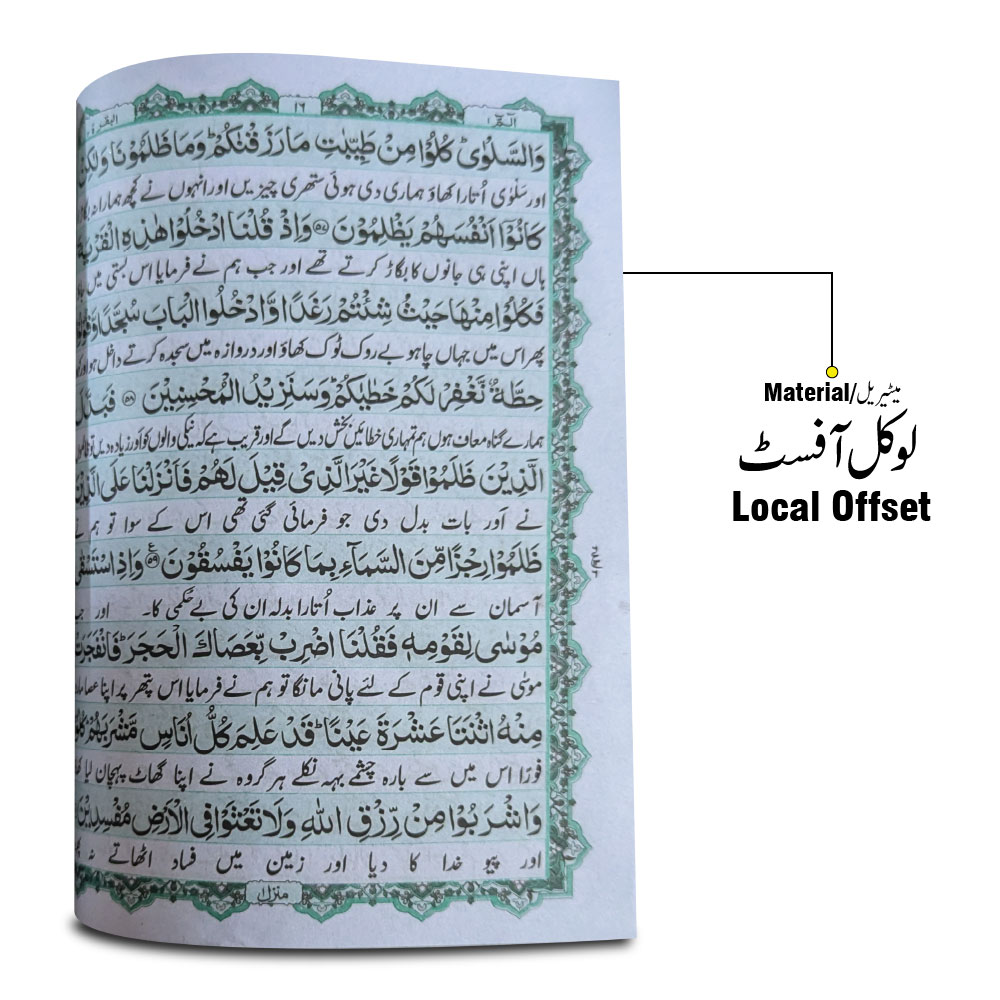 الٓمّٓ ۱
۱۶
البقرة
وَالسَّلْوٰىؕ كُلُوْا مِنْ طَيِّبٰتِ مَا رَزَقْنٰكُمْؕ وَمَا ظَلَمُوْنَا وَلٰكِنْ
اور سلوٰی اُتارا کھاؤ ہماری دی ہوئی ستھری چیزیں اور انہوں نے کچھ ہمارا نہ
كَانُوْۤا اَنْفُسَهُمْ يَظْلِمُوْنَ ۵۷ وَاِذْ قُلْنَا ادْخُلُوْا هٰذِهِ الْقَرْيَةَ
ہاں اپنی ہی جانوں کا بگاڑ کرتے تھے اور جب ہم نے فرمایا اس بستی میں
فَكُلُوْا مِنْهَا حَيْثُ شِئْتُمْ رَغَدًا وَّادْخُلُوا الْبَابَ سُجَّدًا
پھر اس میں جہاں چاہو بے روک ٹوک کھاؤ اور دروازہ میں سجدہ کرتے داخل ہو
حِطَّةٌ نَّغْفِرْ لَكُمْ خَطٰيٰكُمْؕ وَسَنَزِيْدُ الْمُحْسِنِيْنَ ۵۸ فَبَدَّلَ
ہمارے گناہ معاف ہوں ہم تمہاری خطائیں بخش دیں گے اور قریب ہے کہ نیکی والوں کو اور زیادہ دیں
الَّذِيْنَ ظَلَمُوْا قَوْلًا غَيْرَ الَّذِىْ قِيْلَ لَهُمْ فَاَنْزَلْنَا عَلَى
نے اور بات بدل دی جو فرمائی گئی تھی اس کے سوا تو ہم نے
ظَلَمُوْا رِجْزًا مِّنَ السَّمَآءِ بِمَا كَانُوْا يَفْسُقُوْنَ ۵۹ وَاِذِ اسْتَسْقٰى
آسمان سے ان پر عذاب اُتارا بدلہ ان کی بے حکمی کا۔ اور جب
مُوْسٰى لِقَوْمِهٖ فَقُلْنَا اضْرِبْ بِّعَصَاكَ الْحَجَرَؕ فَانْفَجَرَتْ
موسٰی نے اپنی قوم کے لئے پانی مانگا تو ہم نے فرمایا اس پتھر پر اپنا عصا
مِنْهُ اثْنَتَا عَشْرَةَ عَيْنًاؕ قَدْ عَلِمَ كُلُّ اُنَاسٍ مَّشْرَبَهُمْ
فورًا اس میں سے بارہ چشمے بہہ نکلے ہر گروہ نے اپنا گھاٹ پہچان لیا
وَاشْرَبُوْا مِنْ رِّزْقِ اللّٰهِ وَلَا تَعْثَوْا فِى الْاَرْضِ مُفْسِدِيْنَ
اور پیو خدا کا دیا اور زمین میں فساد اٹھاتے نہ
منزل ۱
Material/میٹیریل
لوکل آفسٹ
Local Offset